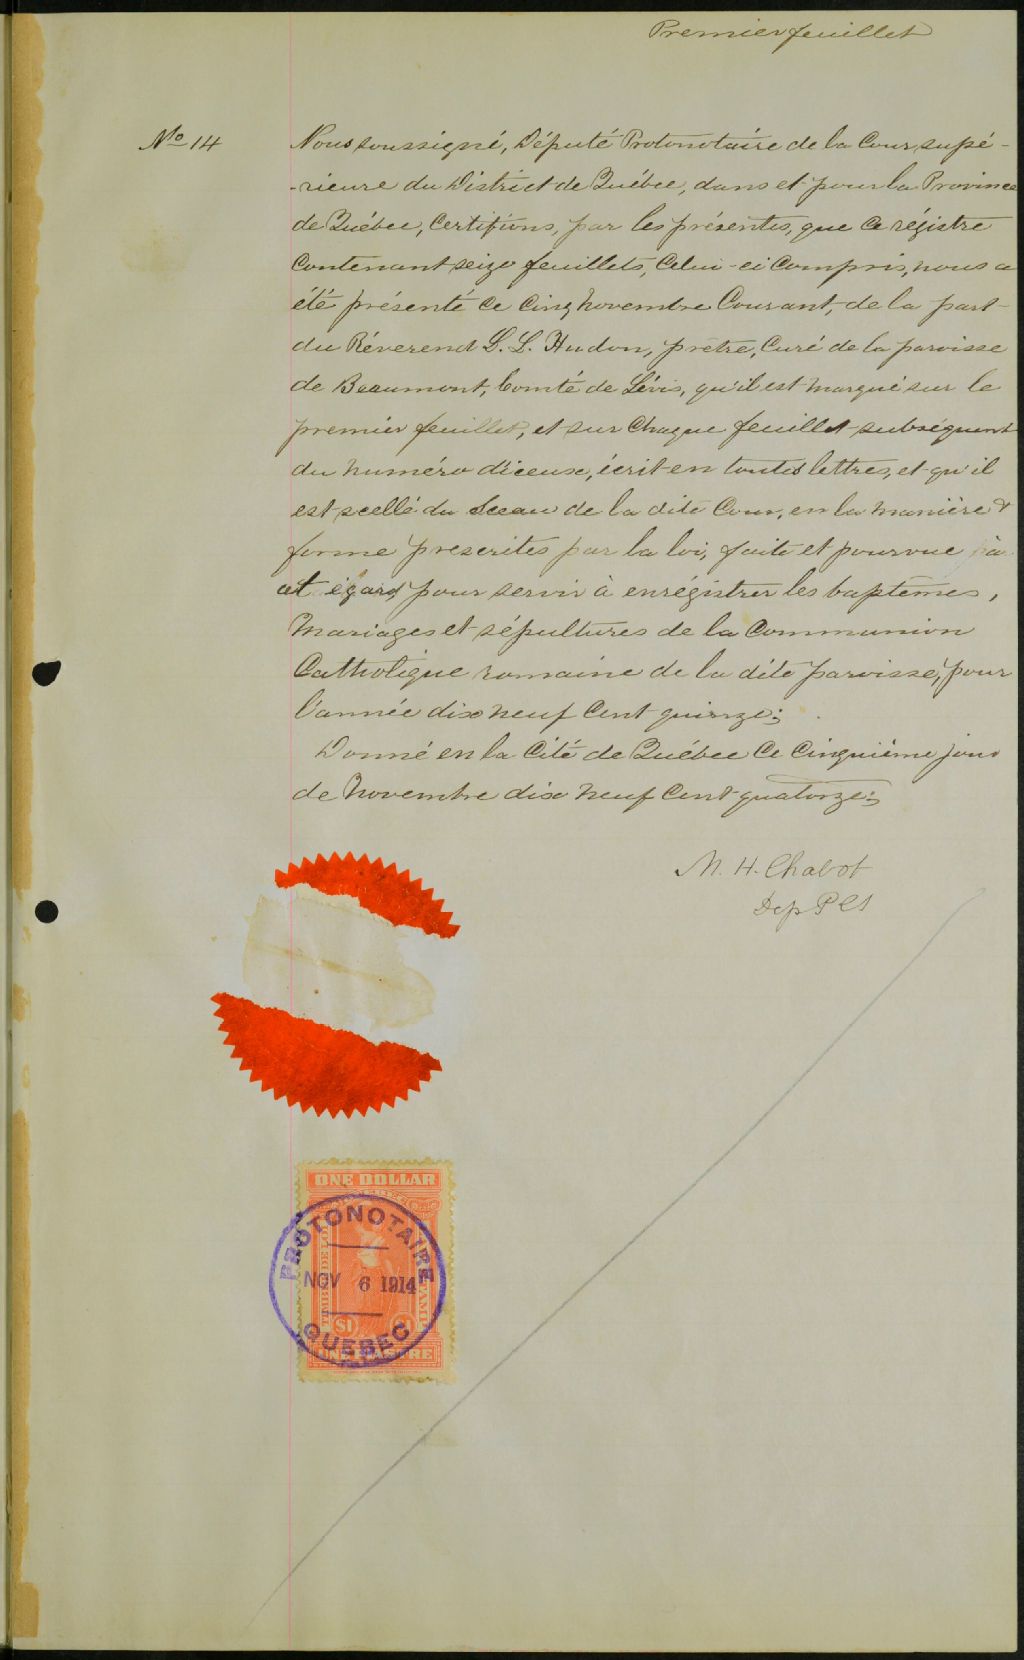 Premier feuillet
No 14
Nous soussigné, Député Protonotaire de la Cour supé-
-rieure du District de Québec, dans et pour la Province
de Québec, Certifions, par les présentes, que ce régistre
contenant seize feuillets, Celui-ci Compris, nous a
été présenté ce cinq Novembre Courant, de la part
du Réverend L. L. Hudon, prêtre, Curé de la paroisse
de Beaumont, Comté de Lévis, qu'il est marqué sur le
premier feuillet, et sur chaque feuillet subséquent
du numéro d'iceux, écrit en toutes lettres, et qu'il
est scellé du Sceau de la dite Cour, en la manière &
forme prescrites par la loi, faite et pourvue à
cet égard, pour servir à enrégistrer les baptêmes,
Mariages et sépultures de la Communion
Catholique romaine de la dite paroisse, pour
l'année dix neuf Cent quinze;
Donné en la Cité de Québec ce Cinquième jour
de Novembre dix neuf Cent quatorze;
M. H. Chabot
Dep P C S
ONE DOLLAR
PROTONOTAIRE
NOV 6 1914
$1
QUEBEC
UNE PIASTRE